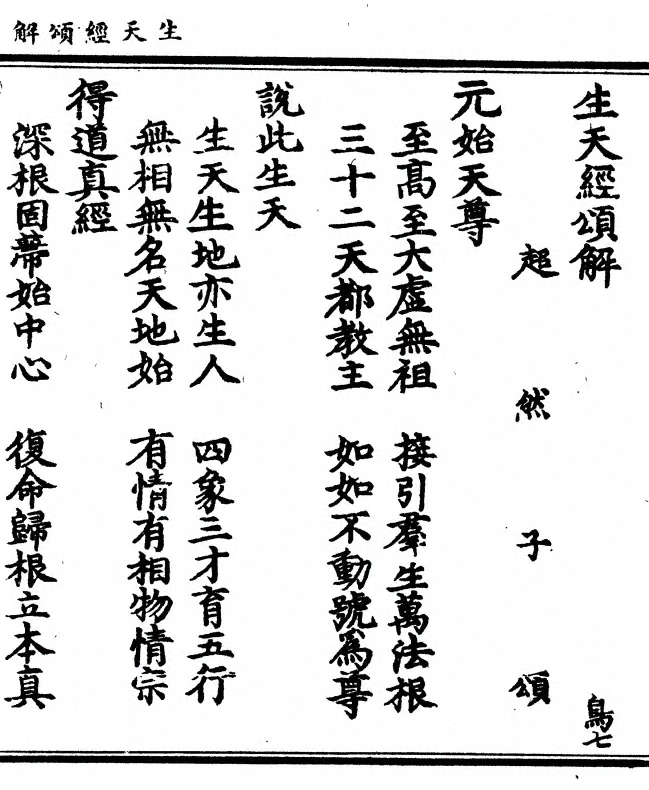 生天經頌解
生天經頌解 鳥七
超然子頌
元始天尊
至高至大虛無祖 接引羣生萬法根
三十二天都教主 如如不動號爲尊
說此生天
生天生地亦生人 四象三才育五行
無相無名天地始 有情有相物情宗
得道真經
深根固蒂始中心 復命歸根立本真